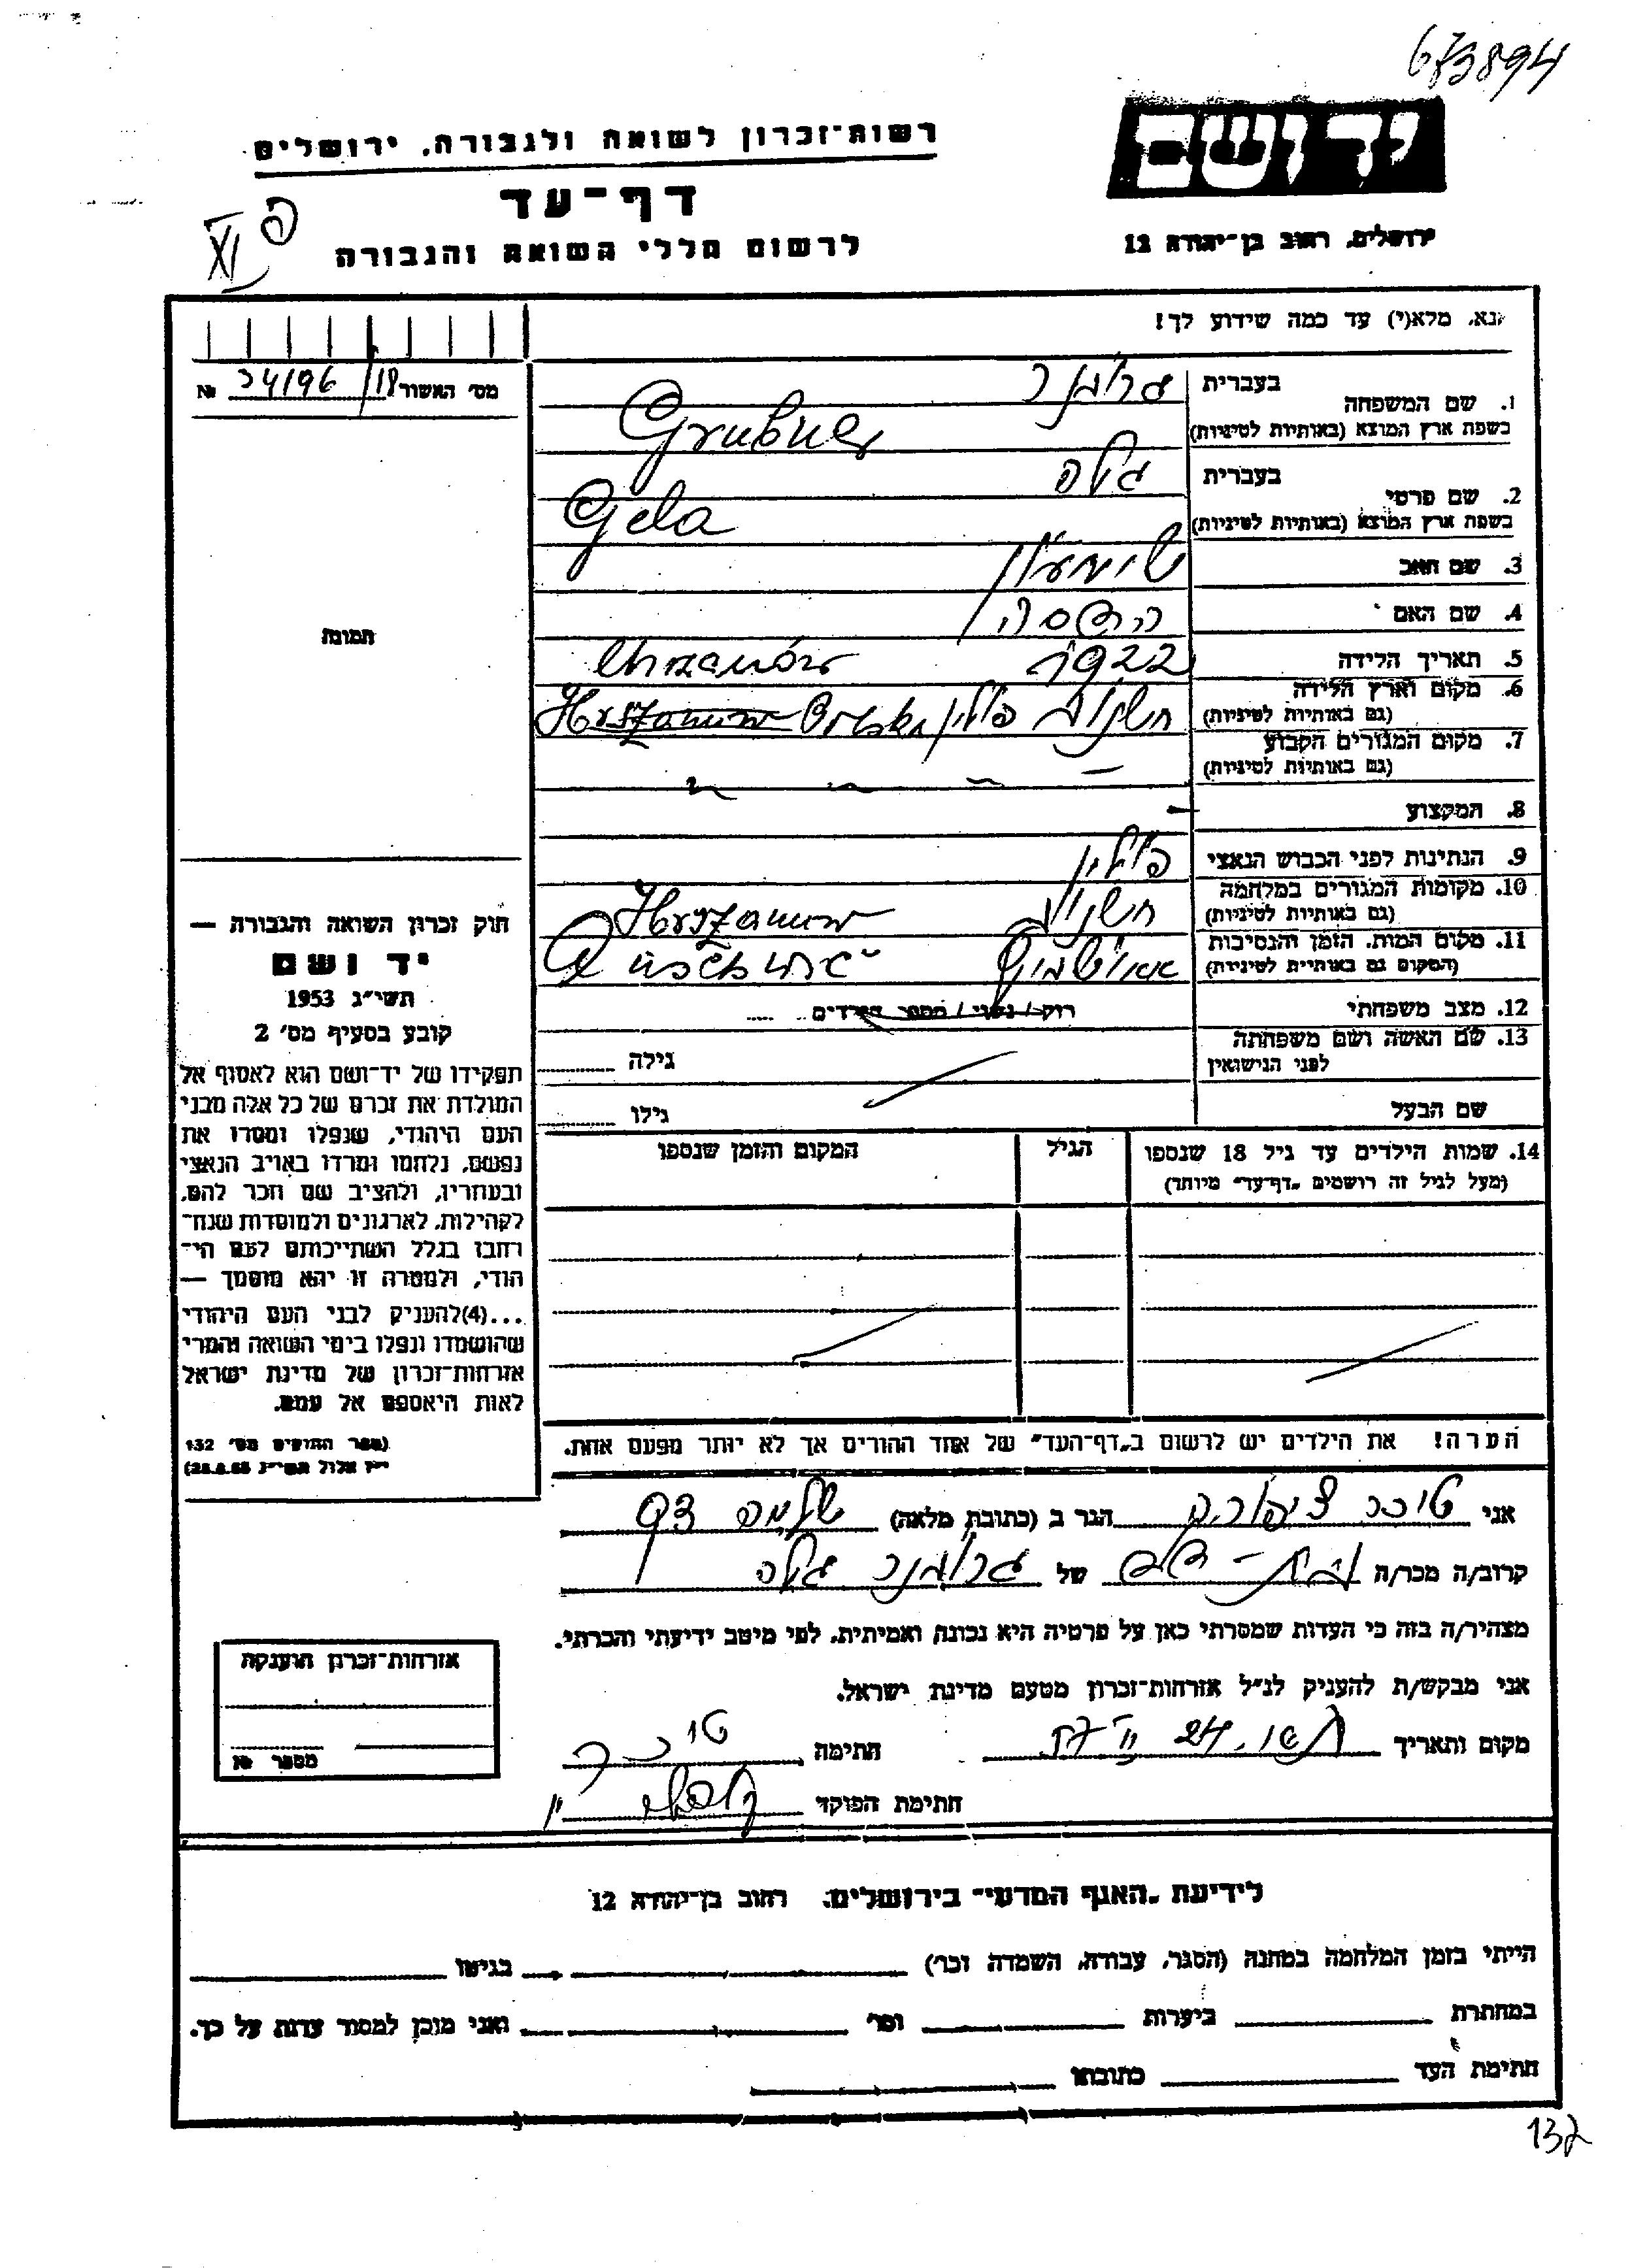 673894
יד ושם
רשות־זכרון לשואה ולגבורה, ירושלים
דף־עד
לרשום חללי השואה והגבורה
ירושלים, רחוב בן־יהודה 12
XI
נא, מלא(י) עד כמה שידוע לך!
מס׳ האשור 18/34196 №
1. שם המשפחה בעברית גרובנר
בשפת ארץ המוצא (באותיות לטיניות) Grubner
2. שם פרטי בעברית גלה
בשפת ארץ המוצא (באותיות לטיניות) Gela
3. שם האב שימעון
4. שם האם הדסה
5. תאריך הלידה 1922 Chrzanów
6. מקום וארץ הלידה
(גם באותיות לטיניות) חשנוב פולין Polska Hrszanuw
7. מקום המגורים הקבוע
(גם באותיות לטיניות)
8. המקצוע -
9. הנתינות לפני הכבוש הנאצי פולין
10. מקומות המגורים במלחמה
(גם באותיות לטיניות) חשנוב Hrszanuw
11. מקום המות, הזמן והנסיבות
(המקום גם באותיות לטיניות) אאושביץ
12. מצב משפחתי רווק / נשוי / מספר הילדים
13. שם האשה ושם משפחתה
לפני הנישואין גילה
שם הבעל גילו
14. שמות הילדים עד גיל 18 שנספו הגיל המקום והזמן שנספו
(מעל לגיל זה רושמים „דף־עד״ מיוחד)
תמונה
חוק זכרון השואה והגבורה —
יד ושם
תשי״ג 1953
קובע בסעיף מס׳ 2
תפקידו של יד־ושם הוא לאסוף אל
המולדת את זכרם של כל אלה מבני
העם היהודי, שנפלו ומסרו את
נפשם, נלחמו ומרדו באויב הנאצי
ובעוזריו, ולהציב שם וזכר להם,
לקהילות, לארגונים ולמוסדות שנח־
רבו בגלל השתייכותם לעם הי־
הודי, ולמטרה זו יהא מוסמך —
...(4)להעניק לבני העם היהודי
שהושמדו ונפלו בימי השואה והמרי
אזרחות־זכרון של מדינת ישראל
לאות היאספם אל עמם.
(ספר החוקים מס׳ 132
י״ז אלול תשי״ג 28.8.53)
הערה! את הילדים יש לרשום ב„דף־העד״ של אחד ההורים אך לא יותר מפעם אחת.
אני טיכר ציפורה הגר ב (כתובת מלאה)
קרוב/ה מכר/ה בת-דוד של גרובנר גלה
מצהיר/ה בזה כי העדות שמסרתי כאן על פרטיה היא נכונה ואמיתית, לפי מיטב ידיעתי והכרתי.
אני מבקש/ת להעניק לנ״ל אזרחות־זכרון מטעם מדינת ישראל.
מקום ותאריך חתימה
חתימת הפוקד
אזרחות־זכרון הוענקה
מספר №
לידיעת „האגף המדעי״ בירושלים, רחוב בן־יהודה 12
הייתי בזמן המלחמה במחנה (הסגר, עבודה, השמדה וכר׳) בגיטו
במחתרת ביערות וכר׳ ואני מוכן למסור עדות על כך.
חתימת העד כתובתו
132